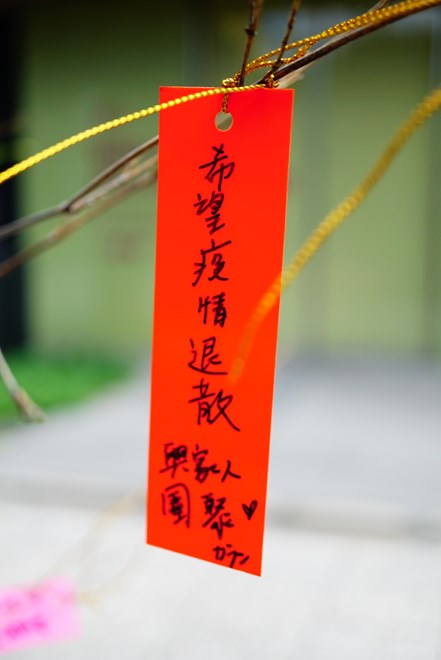 希望疫情退散
與家人
團聚♥
カナン